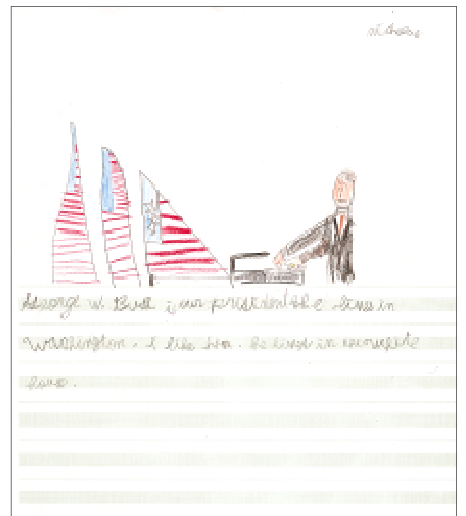 Nicholas
George W. Bush is our president he lives in
Washington. I like him. He lives in
house.